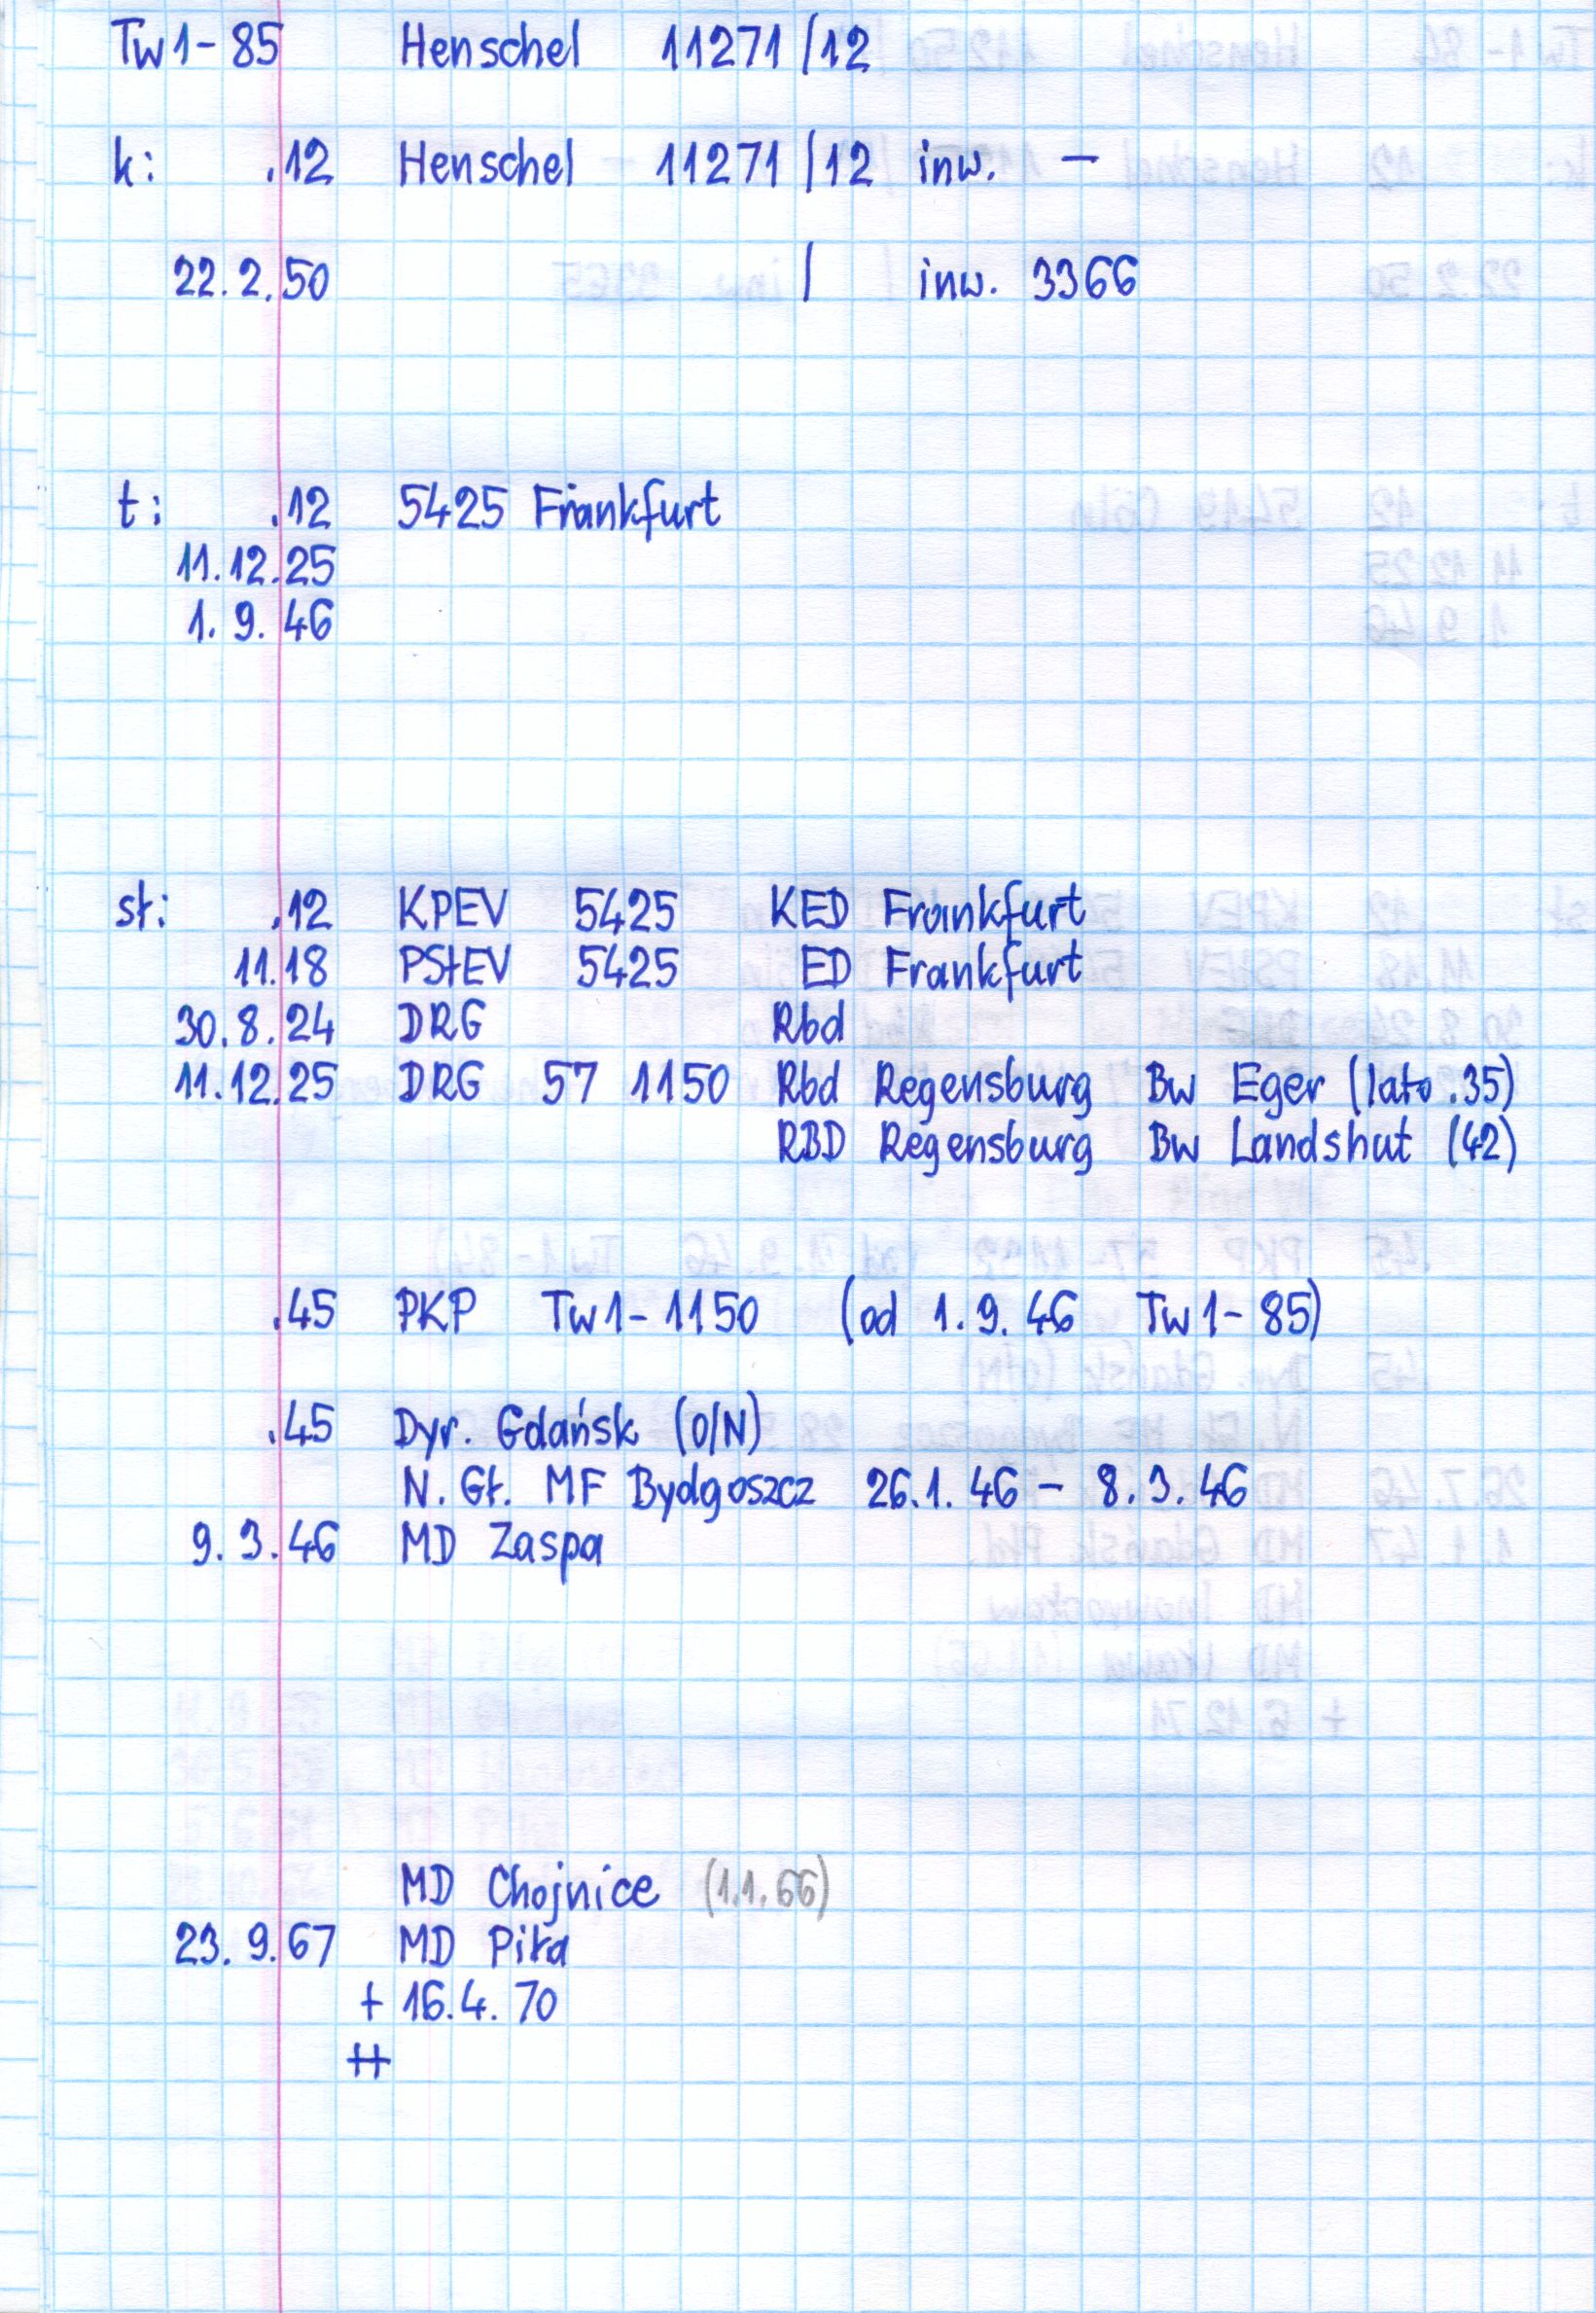 Tw1-85 Henschel 11271/12
k: .12 Henschel 11271/12 inw. –
22.2.50 / inw. 3366
t: .12 5425 Frankfurt
11.12.25
1.9.46
st: .12 KPEV 5425 KED Frankfurt
11.18 PStEV 5425 ED Frankfurt
30.8.24 DRG Rbd
11.12.25 DRG 57 1150 Rbd Regensburg Bw Eger (lato .35)
RBD Regensburg Bw Landshut (42)
.45 PKP Tw1-1150 (od 1.9.46 Tw1-85)
.45 Dyr. Gdańsk (O/N)
N. Gł. MF Bydgoszcz 26.1.46 – 8.3.46
9.3.46 MD Zaspa
MD Chojnice (1.1.66)
23.9.67 MD Piła
+ 16.4.70
++